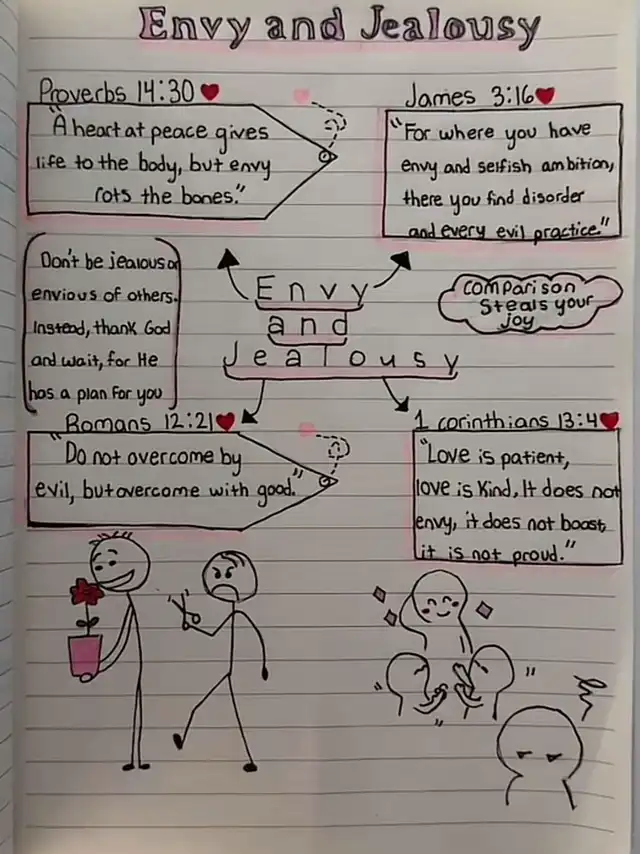 Envy and Jealousy
Proverbs 14:30
"A heart at peace gives
life to the body, but envy
rots the bones."
James 3:16
"For where you have
envy and selfish ambition,
there you find disorder
and every evil practice."
Don't be jealous or
envious of others.
Instead, thank God
and wait, for He
has a plan for you
Envy
and
Jealousy
comparison
steals your
joy
Romans 12:21
"Do not overcome by
evil, but overcome with good."
1 corinthians 13:4
"Love is patient,
love is kind, It does not
envy, it does not boast,
it is not proud."